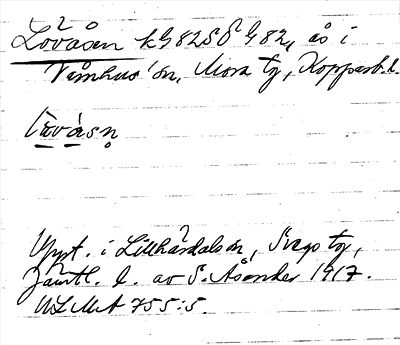 Lövåsen kG82SÖG82, ås i
Våmhus sn, Mora tg, Kopparb. l.
Lövåsn̥
Uppt. i Lillhärdals sn, Svegs tg,
Jämtl. l. av S. Åsander 1917.
ULMA 755:5.